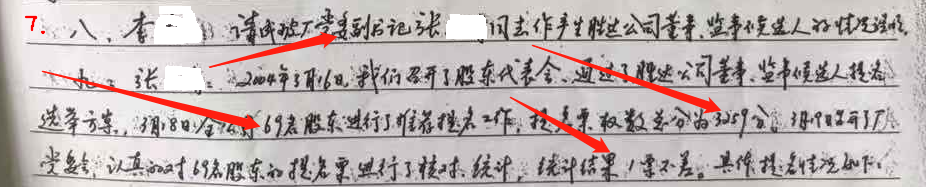 7. 八、李 请我破厂党委副书记张 同志作产生胜达公司董事、监事候选人的情况说明。
九、张 : 2004年3月16日,我们召开了股东代表会,通过了胜达公司董事、监事候选人提名
选举方案,3月18日全公司69名股东进行了推荐提名工作,提名票权数总分为3259分,3月19日召开了厂
党委会,认真的对69名股东的提名票进行了核对、统计,统计结果1票不差。具体提名情况如下: